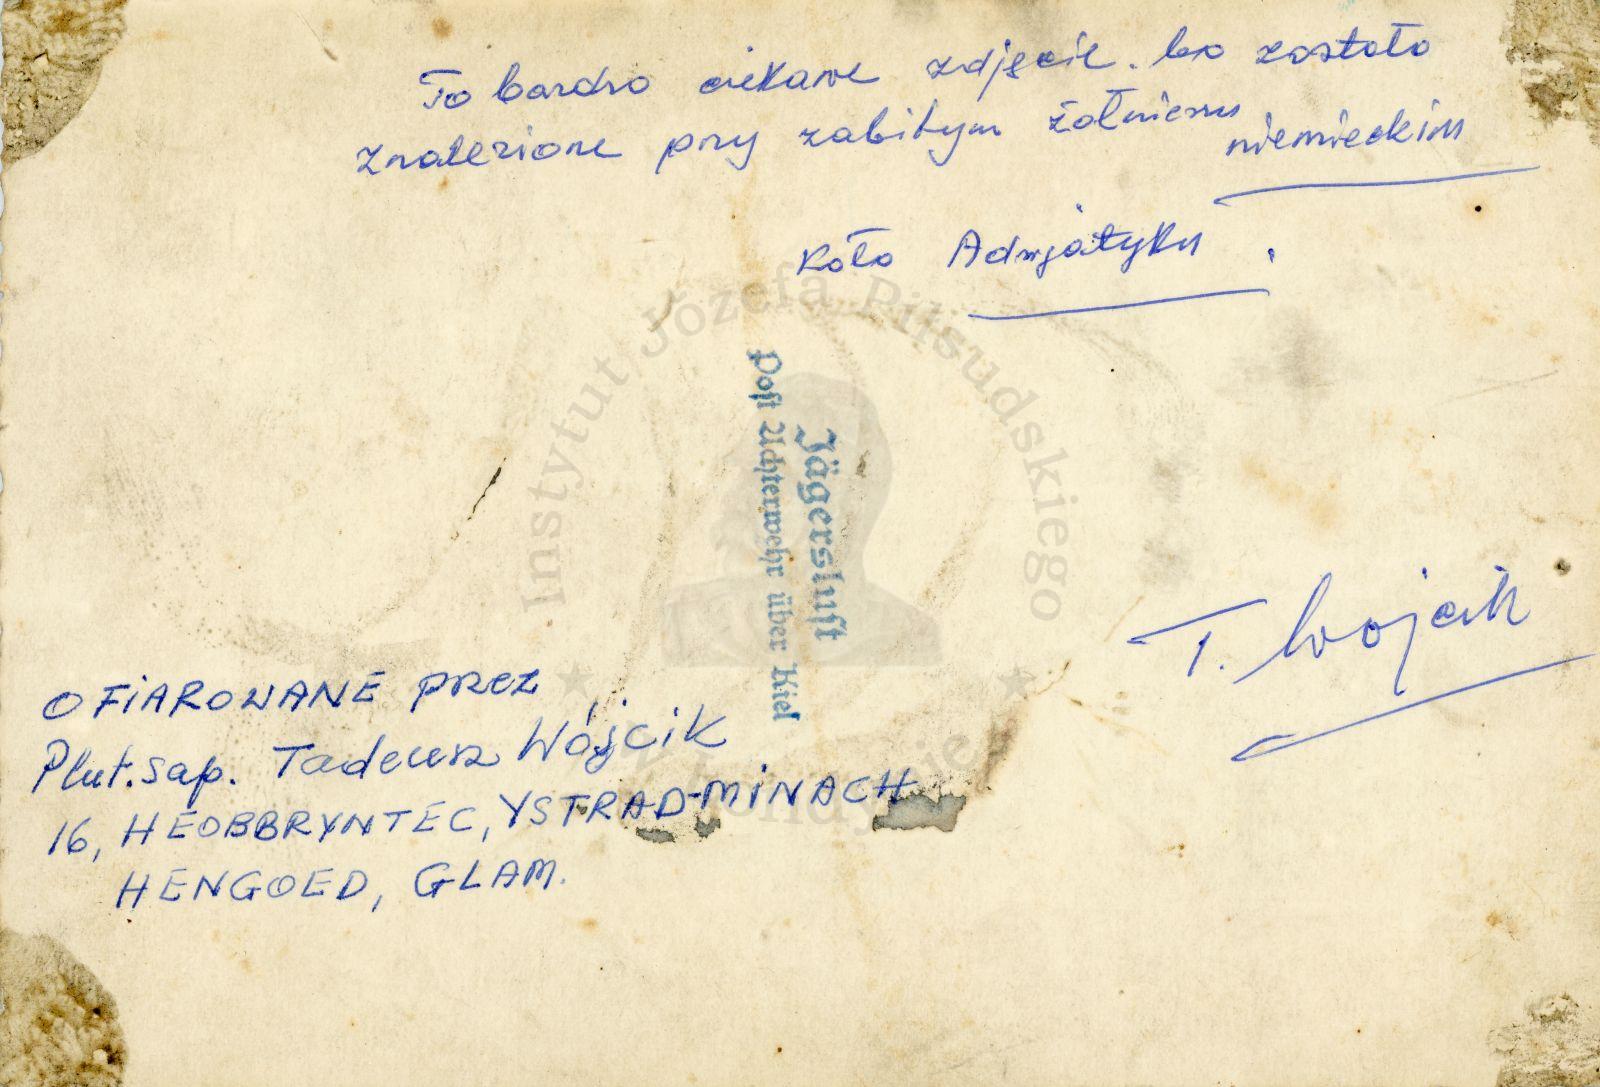 To bardzo ciekawe zdjęcie. bo zostało
znalezione przy zabitym żołnierzu
niemieckim
koło Adrjatyku.
Instytut Józefa Piłsudskiego
w Londynie
Jägerslust
Post Achterwehr über Kiel
T. Wojcik
OFIAROWANE PRZEZ
Plut. sap. Tadeusz Wójcik
16, HEOBBRYNTEC, YSTRAD-MINACH
HENGOED, GLAM.